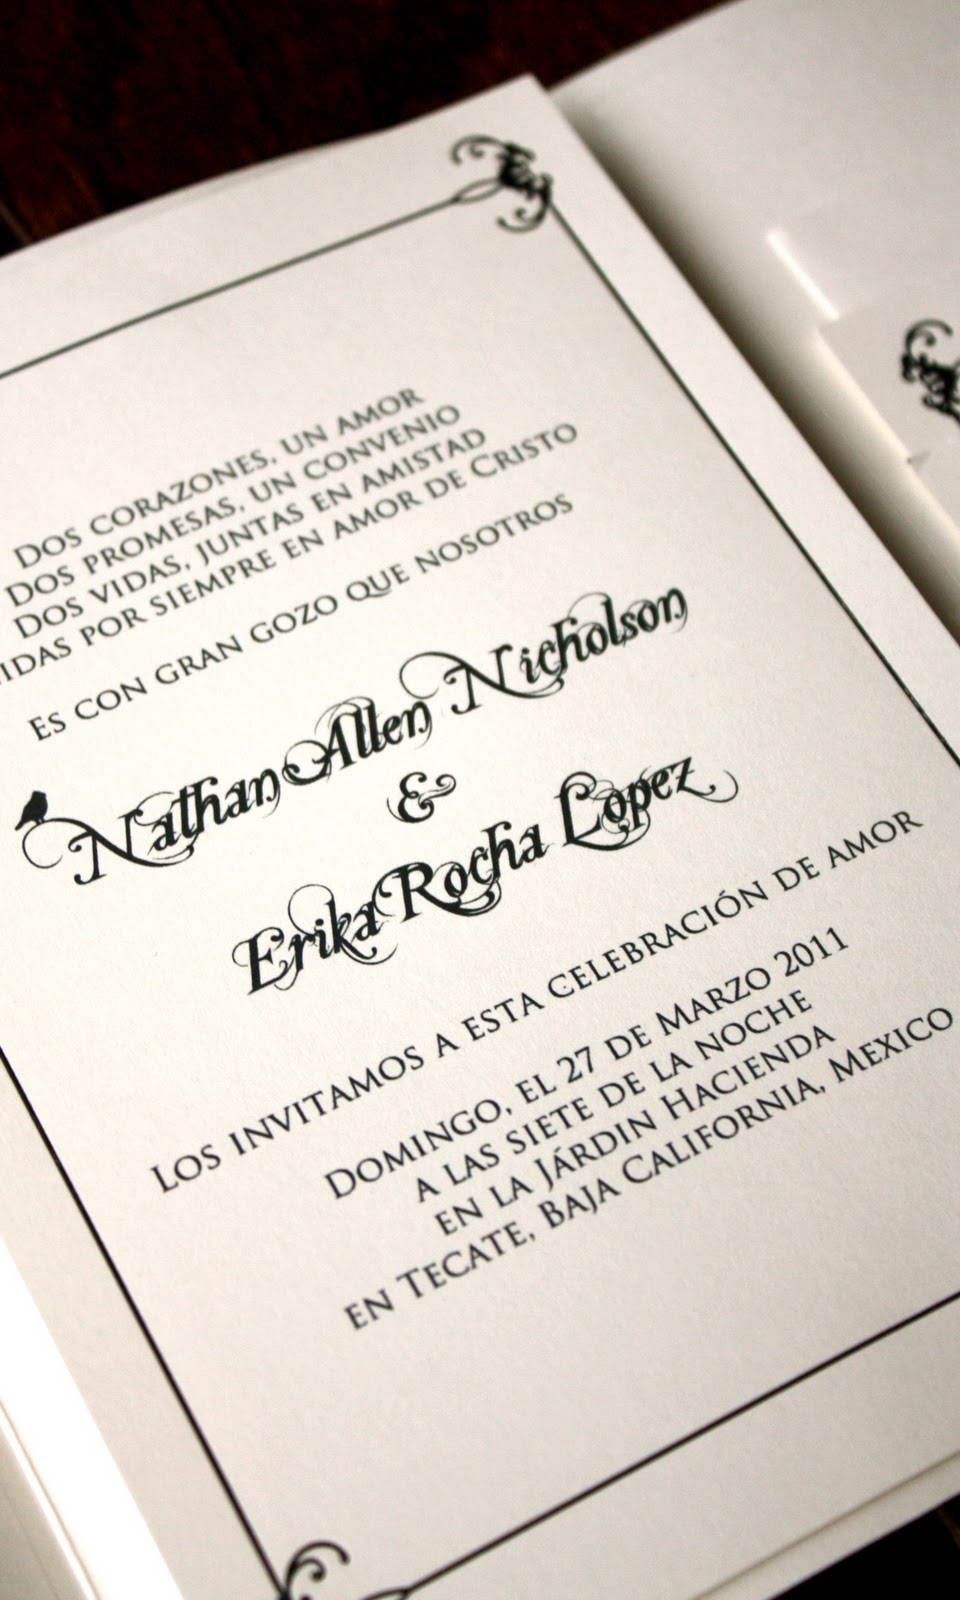 Dos corazones, un amor
Dos promesas, un convenio
Dos vidas, juntas en amistad
por siempre en amor de Cristo
Es con gran gozo que nosotros
Nathan Allen Nicholson
&
Erika Rocha Lopez
los invitamos a esta celebración de amor
Domingo, el 27 de Marzo 2011
a las siete de la noche
en la Járdin Hacienda
en Tecate, Baja California, Mexico